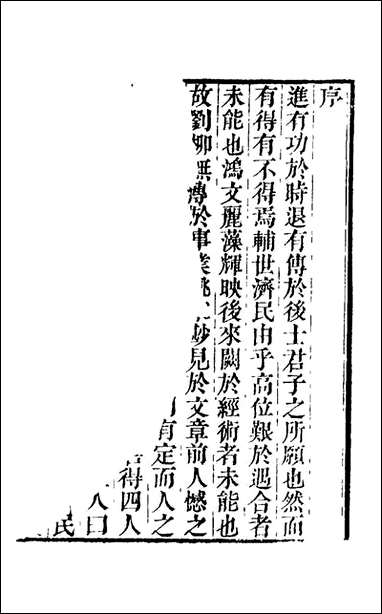 序
進有功於時退有傳於後士君子之所願也然而
有得有不得焉輔世濟民由乎高位艱於遇合者
未能也鴻文麗藻輝映後來闕於經術者未能也
故劉柳無傳於事業姚見於文章前人憾之
有定而人之
得四人
曰
民